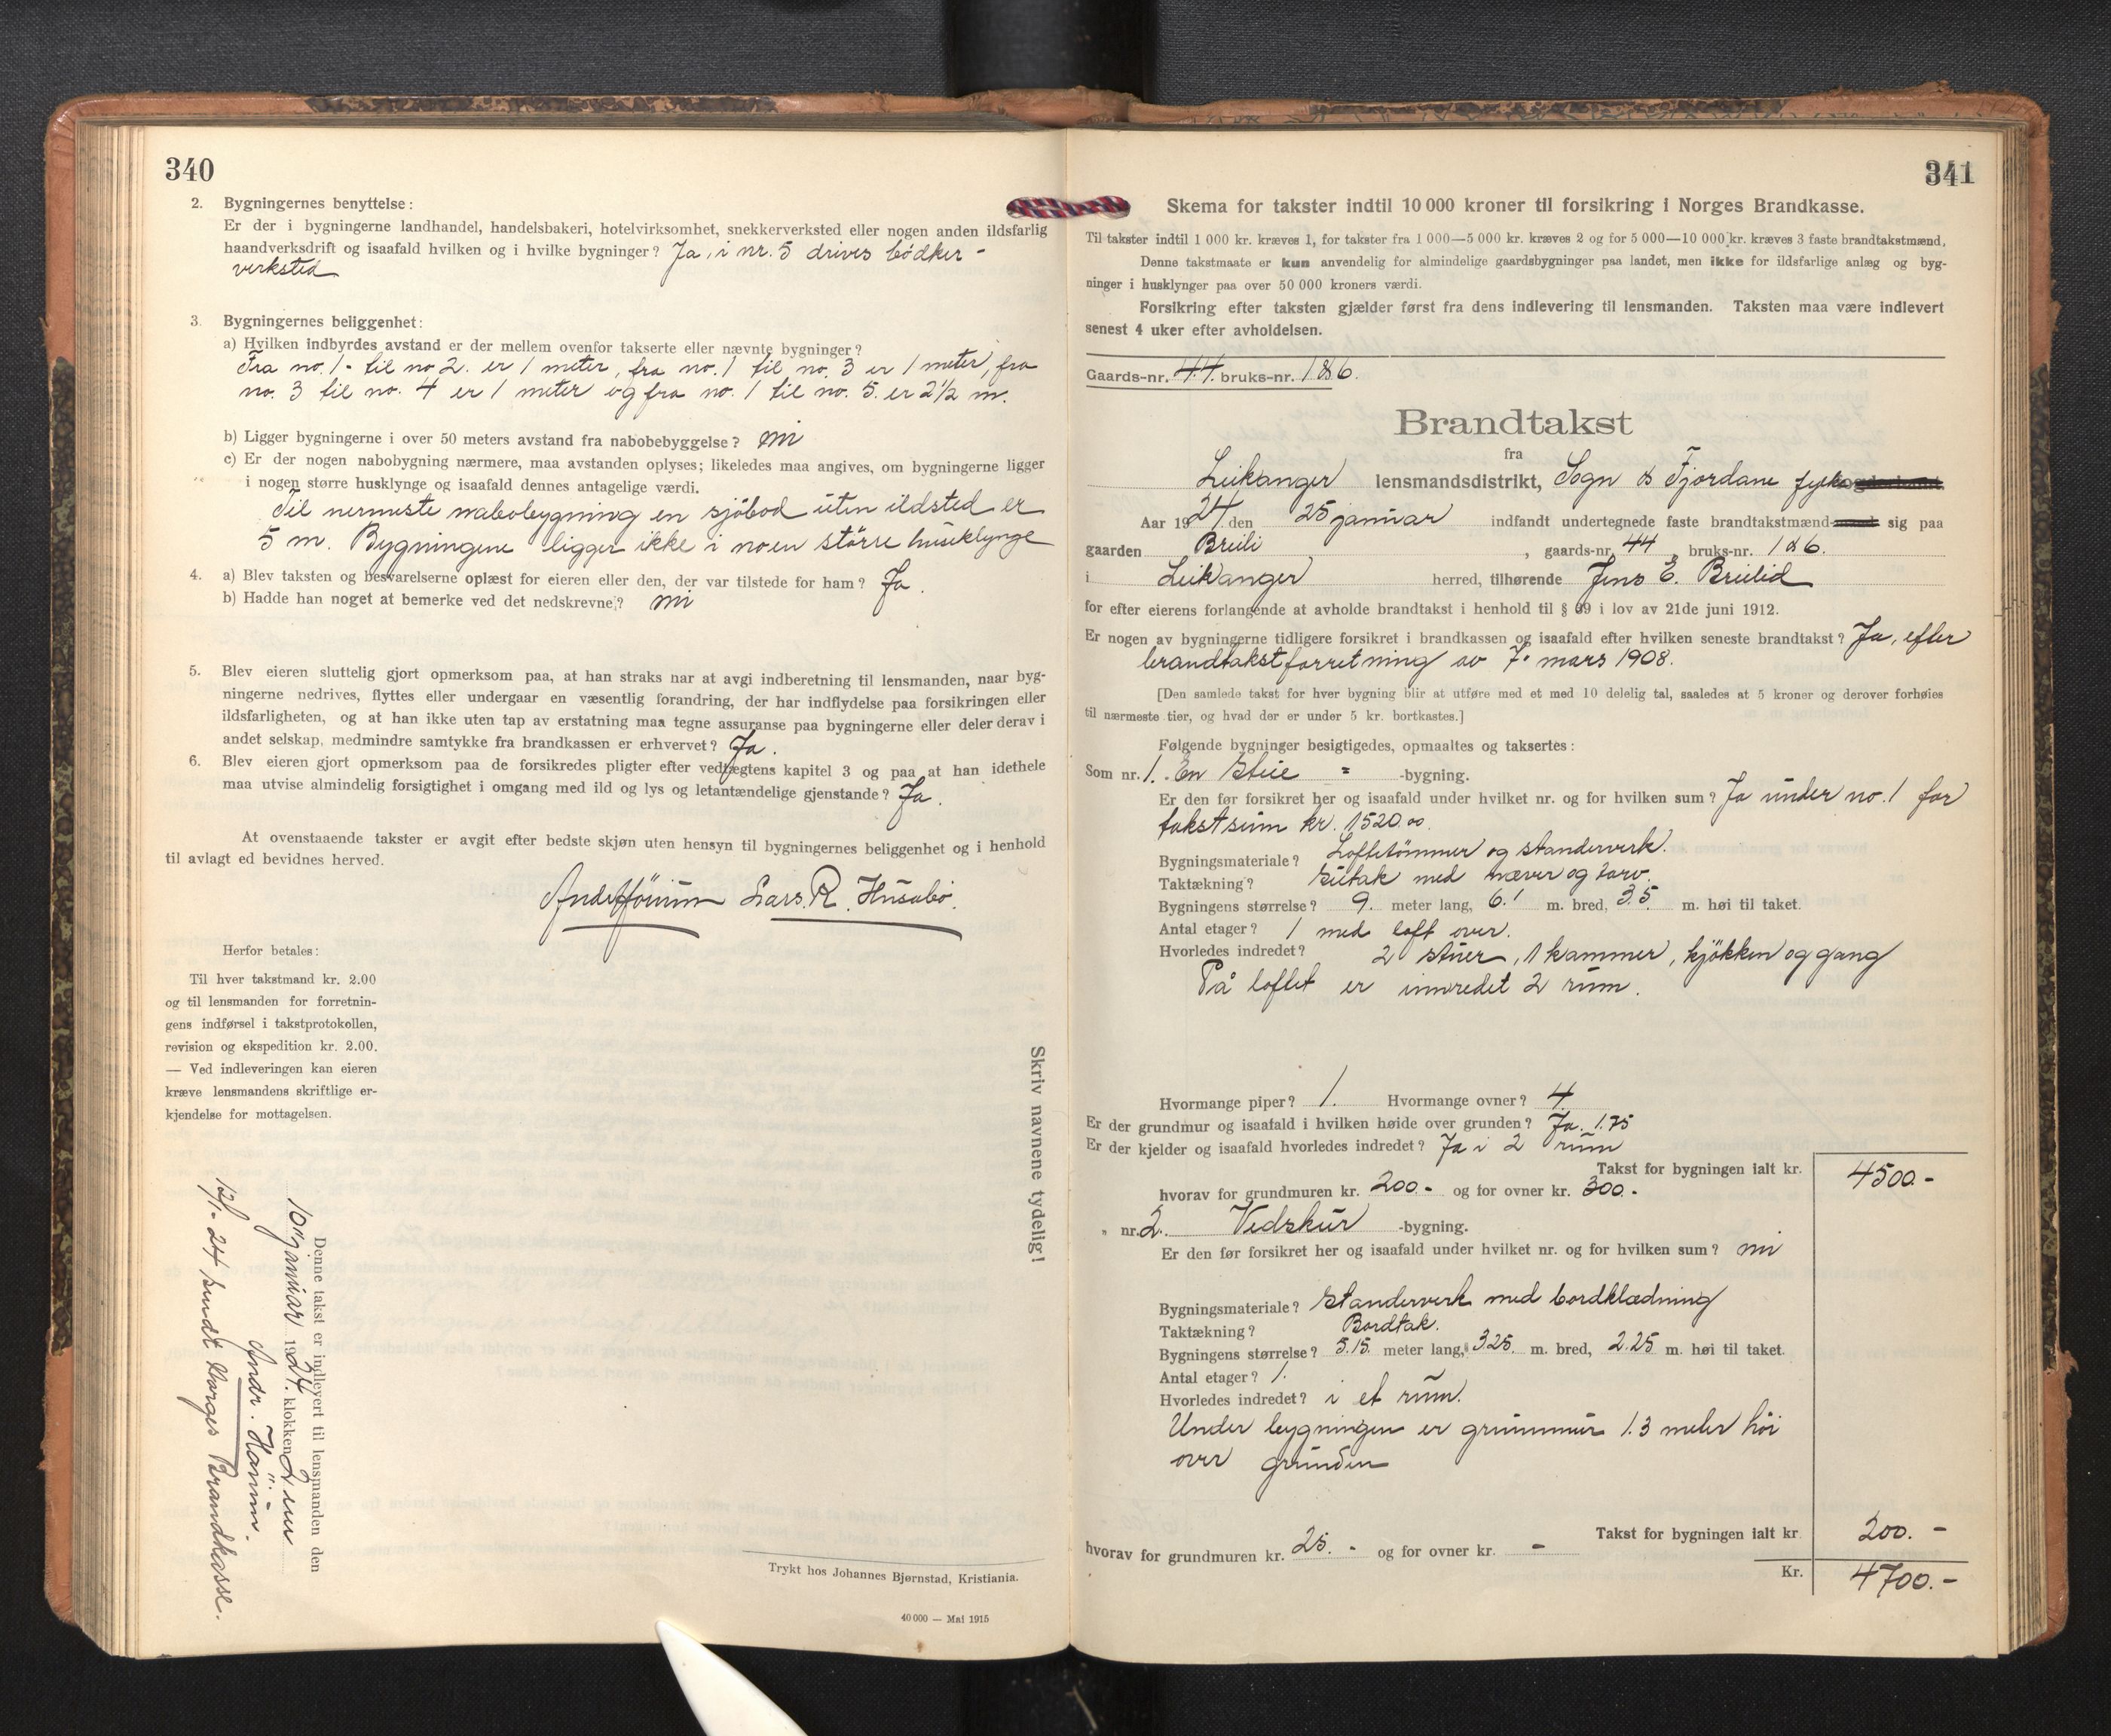 340
2. Bygningernes benyttelse:
Er der i bygningerne landhandel, handelsbakeri, hotelvirksomhet, snekkerverksted eller nogen anden ildsfarlig
haandverksdrift og isaafald hvilken og i hvilke bygninger? Ja, i nr. 5 drives bödker-
verksted
3. Bygningernes beliggenhet:
a) Hvilken indbyrdes avstand er der mellem ovenfor takserte eller nævnte bygninger?
Fra no. 1 - til no 2. er 1 meter, fra no. 1 til no. 3 er 1 meter, fra
no. 3 til no. 4 er 1 meter og fra no. 1 til no. 5. er 2 1/2 m.
b) Ligger bygningerne i over 50 meters avstand fra nabobebyggelse? nei
c) Er der nogen nabobygning nærmere, maa avstanden oplyses; likeledes maa angives, om bygningerne ligger
i nogen større husklynge og isaafald dennes antagelige værdi.
Til nermeste nabobygning en sjöbod uten ildsted er
5 m. Bygningene ligger ikke i noen större huseklynge
4. a) Blev taksten og besvarelserne oplæst for eieren eller den, der var tilstede for ham? Ja.
b) Hadde han noget at bemerke ved det nedskrevne? nei
5. Blev eieren sluttelig gjort opmerksom paa, at han straks har at avgi indberetning til lensmanden, naar byg-
ningerne nedrives, flyttes eller undergaar en væsentlig forandring, der har indflydelse paa forsikringen eller
ildsfarligheten, og at han ikke uten tap av erstatning maa tegne assuranse paa bygningerne eller deler derav i
andet selskap, medmindre samtykke fra brandkassen er erhvervet? Ja.
6. Blev eieren gjort opmerksom paa de forsikredes pligter efter vedtægtens kapitel 3 og paa at han idethele
maa utvise almindelig forsigtighet i omgang med ild og lys og letantændelige gjenstande? Ja.
At ovenstaaende takster er avgit efter bedste skjøn uten hensyn til bygningernes beliggenhet og i henhold
til avlagt ed bevidnes herved.
Lars. R. Husabö.
Herfor betales:
Til hver takstmand kr. 2.00
og til lensmanden for forretnin-
gens indførsel i takstprotokollen,
revision og ekspedition kr. 2.00.
— Ved indleveringen kan eieren
kræve lensmandens skriftlige er-
kjendelse for mottagelsen.
Skriv navnene tydelig!
Denne takst er indlevert til lensmanden den
10 januar 1924. klokken 2 em
Andr. Hönim.
12/1-24 sendt Norges Brandkasse.
Trykt hos Johannes Bjørnstad, Kristiania.
40 000 — Mai 1915
341
Skema for takster indtil 10 000 kroner til forsikring i Norges Brandkasse.
Til takster indtil 1 000 kr. kræves 1, for takster fra 1 000—5 000 kr. kræves 2 og for 5 000—10 000 kr. kræves 3 faste brandtakstmænd.
Denne takstmaate er kun anvendelig for almindelige gaardsbygninger paa landet, men ikke for ildsfarlige anlæg og byg-
ninger i husklynger paa over 50 000 kroners værdi.
Forsikring efter taksten gjælder først fra dens indlevering til lensmanden. Taksten maa være indlevert
senest 4 uker efter avholdelsen.
Gaards-nr. 44. bruks-nr. 186.
Brandtakst
fra
Leikanger lensmandsdistrikt, Sogn & Fjordane fylke
Aar 1924 den 25 januar indfandt undertegnede faste brandtakstmænd sig paa
gaarden Breili, gaards-nr. 44, bruks-nr. 186.
i Leikanger herred, tilhørende Jens E. Breilid
for efter eierens forlangende at avholde brandtakst i henhold til § 39 i lov av 21de juni 1912.
Er nogen av bygningerne tidligere forsikret i brandkassen og isaafald efter hvilken seneste brandtakst? Ja, efter
brandtakstforretning av 7. mars 1908.
[Den samlede takst for hver bygning blir at utføre med et med 10 delelig tal, saaledes at 5 kroner og derover forhøies
til nærmeste tier, og hvad der er under 5 kr. bortkastes.]
Følgende bygninger besigtigedes, opmaaltes og taksertes:
Som nr. 1. En Stue = -bygning.
Er den før forsikret her og isaafald under hvilket nr. og for hvilken sum? Ja under no. 1 for
takstsum kr. 1520.00.
Bygningsmateriale? Loftetömmer og standerverk.
Taktækning? Sutak med næver og torv.
Bygningens størrelse? 9. meter lang, 6.1 m. bred, 3.5 m. høi til taket.
Antal etager? 1 med loft over.
Hvorledes indredet? 2 stuer, 1 kammer, kjökken og gang
På loftet er innredet 2 rum.
Hvormange piper? 1. Hvormange ovner? 4
Er der grundmur og isaafald i hvilken høide over grunden? Ja. 1.75
Er der kjelder og isaafald hvorledes indredet? Ja i 2 rum
Takst for bygningen ialt kr. 4500.-
hvorav for grundmuren kr. 200.- og for ovner kr. 300.-
„ nr. 2. Vedskur -bygning.
Er den før forsikret her og isaafald under hvilket nr. og for hvilken sum? nei
Bygningsmateriale? Standerverk med bordklædning
Taktækning? Bordtak.
Bygningens størrelse? 5.15. meter lang, 3.25. m. bred, 2.25 m. høi til taket.
Antal etager? 1.
Hvorledes indredet? i et rum.
Under bygningen er grunnmur 1.3 meter höi
over grunden
Takst for bygningen ialt kr. 200.-
hvorav for grundmuren kr. 25.- og for ovner kr. -
Kr. 4700.-